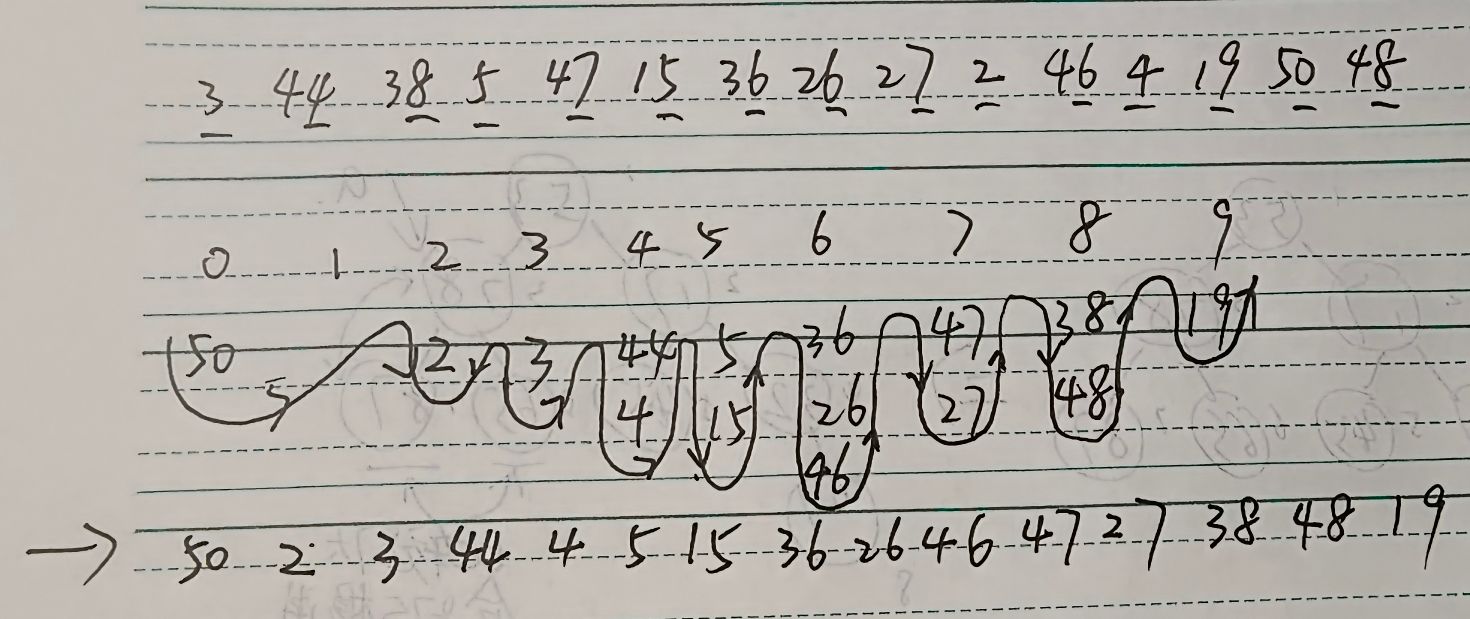 3 44 38 5 47 15 36 26 27 2 46 4 19 50 48
0 1 2 3 4 5 6 7 8 9
50 2 3 44 5 36 47 38 19
4 15 26 27 48
46
50 2 3 44 4 5 15 36 26 46 47 27 38 48 19